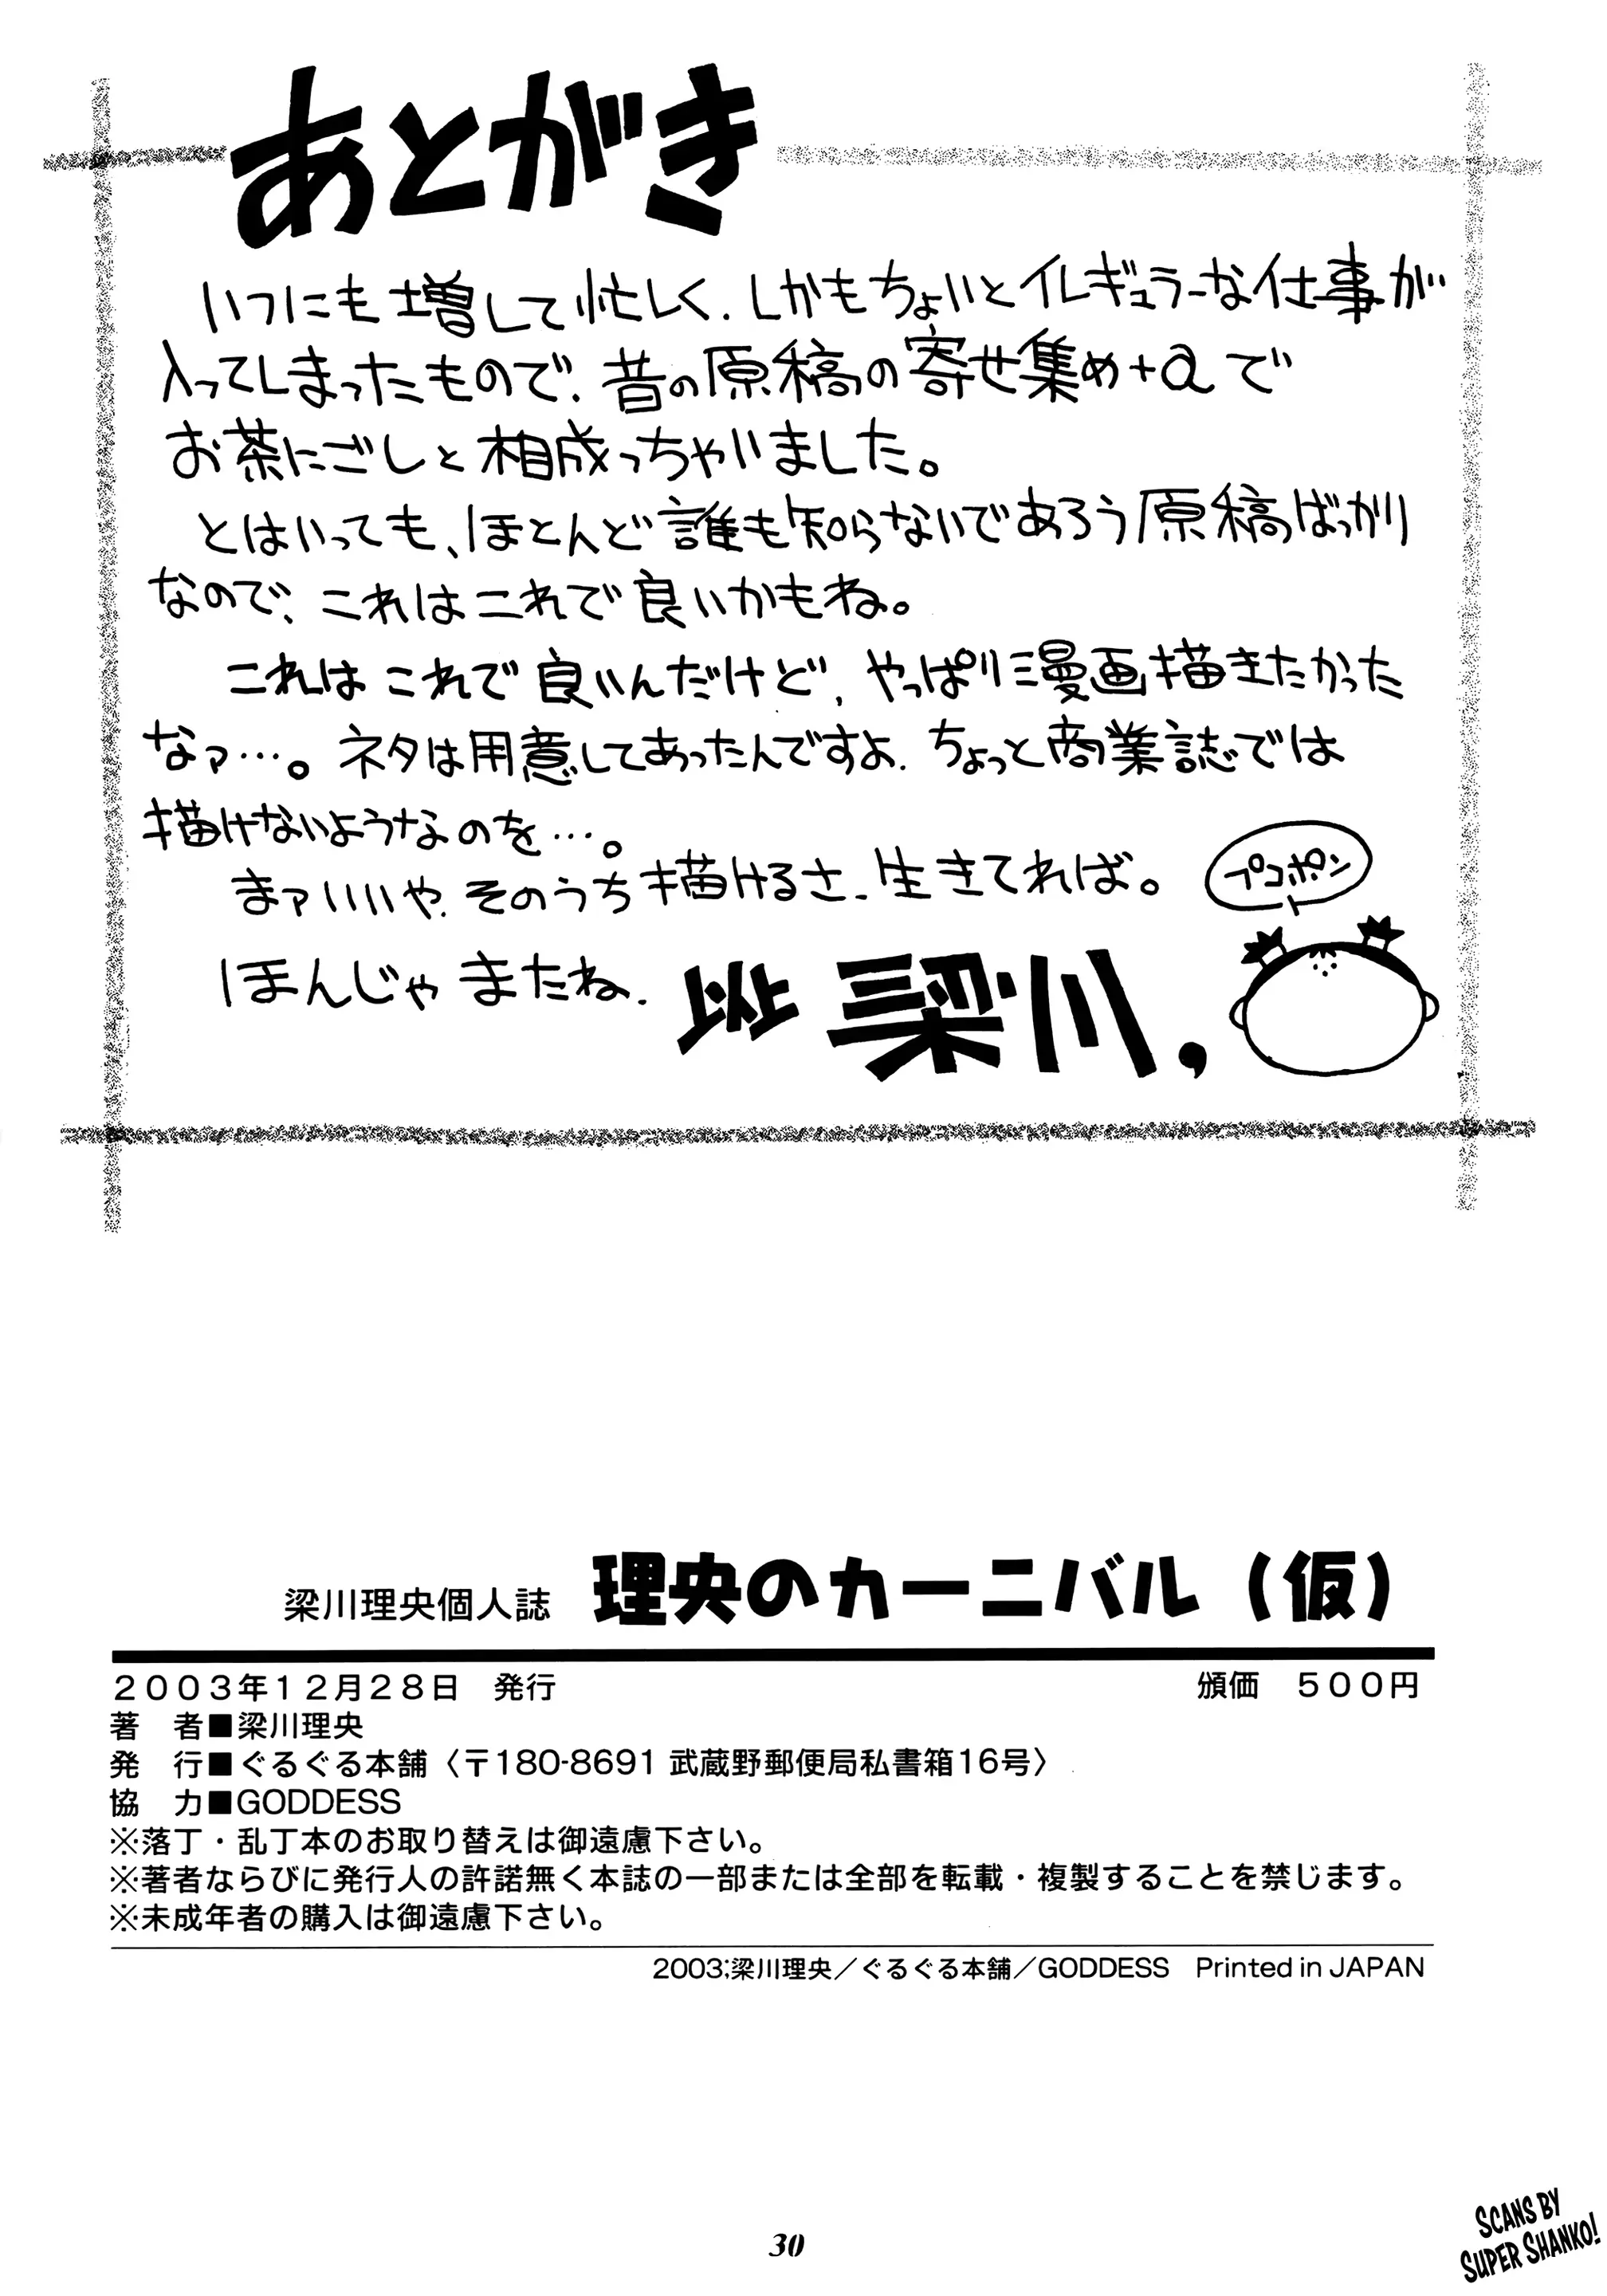 あとがき
いつにも増して忙しく、しかもちょいとイレギュラーな仕事が
入ってしまったもので、昔の原稿の寄せ集め+αで
お茶にごしと相成っちゃいました。
とはいっても、ほとんど誰も知らないであろう原稿ばっかり
なので、これはこれで良いかもね。
これはこれで良いんだけど、やっぱり漫画描きたかった
なァ…。ネタは用意してあったんですよ、ちょっと商業誌では
描けないようなのを…。
まァいいや、そのうち描けるさ、生きてれば。
ペコポン
ほんじゃまたね、 以上 梁川,
梁川理央個人誌 理央のカーニバル（仮）
２００３年１２月２８日　発行 頒価　５００円
著　者■梁川理央
発　行■ぐるぐる本舗〈〒180-8691 武蔵野郵便局私書箱16号〉
協　力■GODDESS
※落丁・乱丁本のお取り替えは御遠慮下さい。
※著者ならびに発行人の許諾無く本誌の一部または全部を転載・複製することを禁じます。
※未成年者の購入は御遠慮下さい。
2003;梁川理央／ぐるぐる本舗／GODDESS　Printed in JAPAN
30
SCANS BY
SUPER SHANKO!